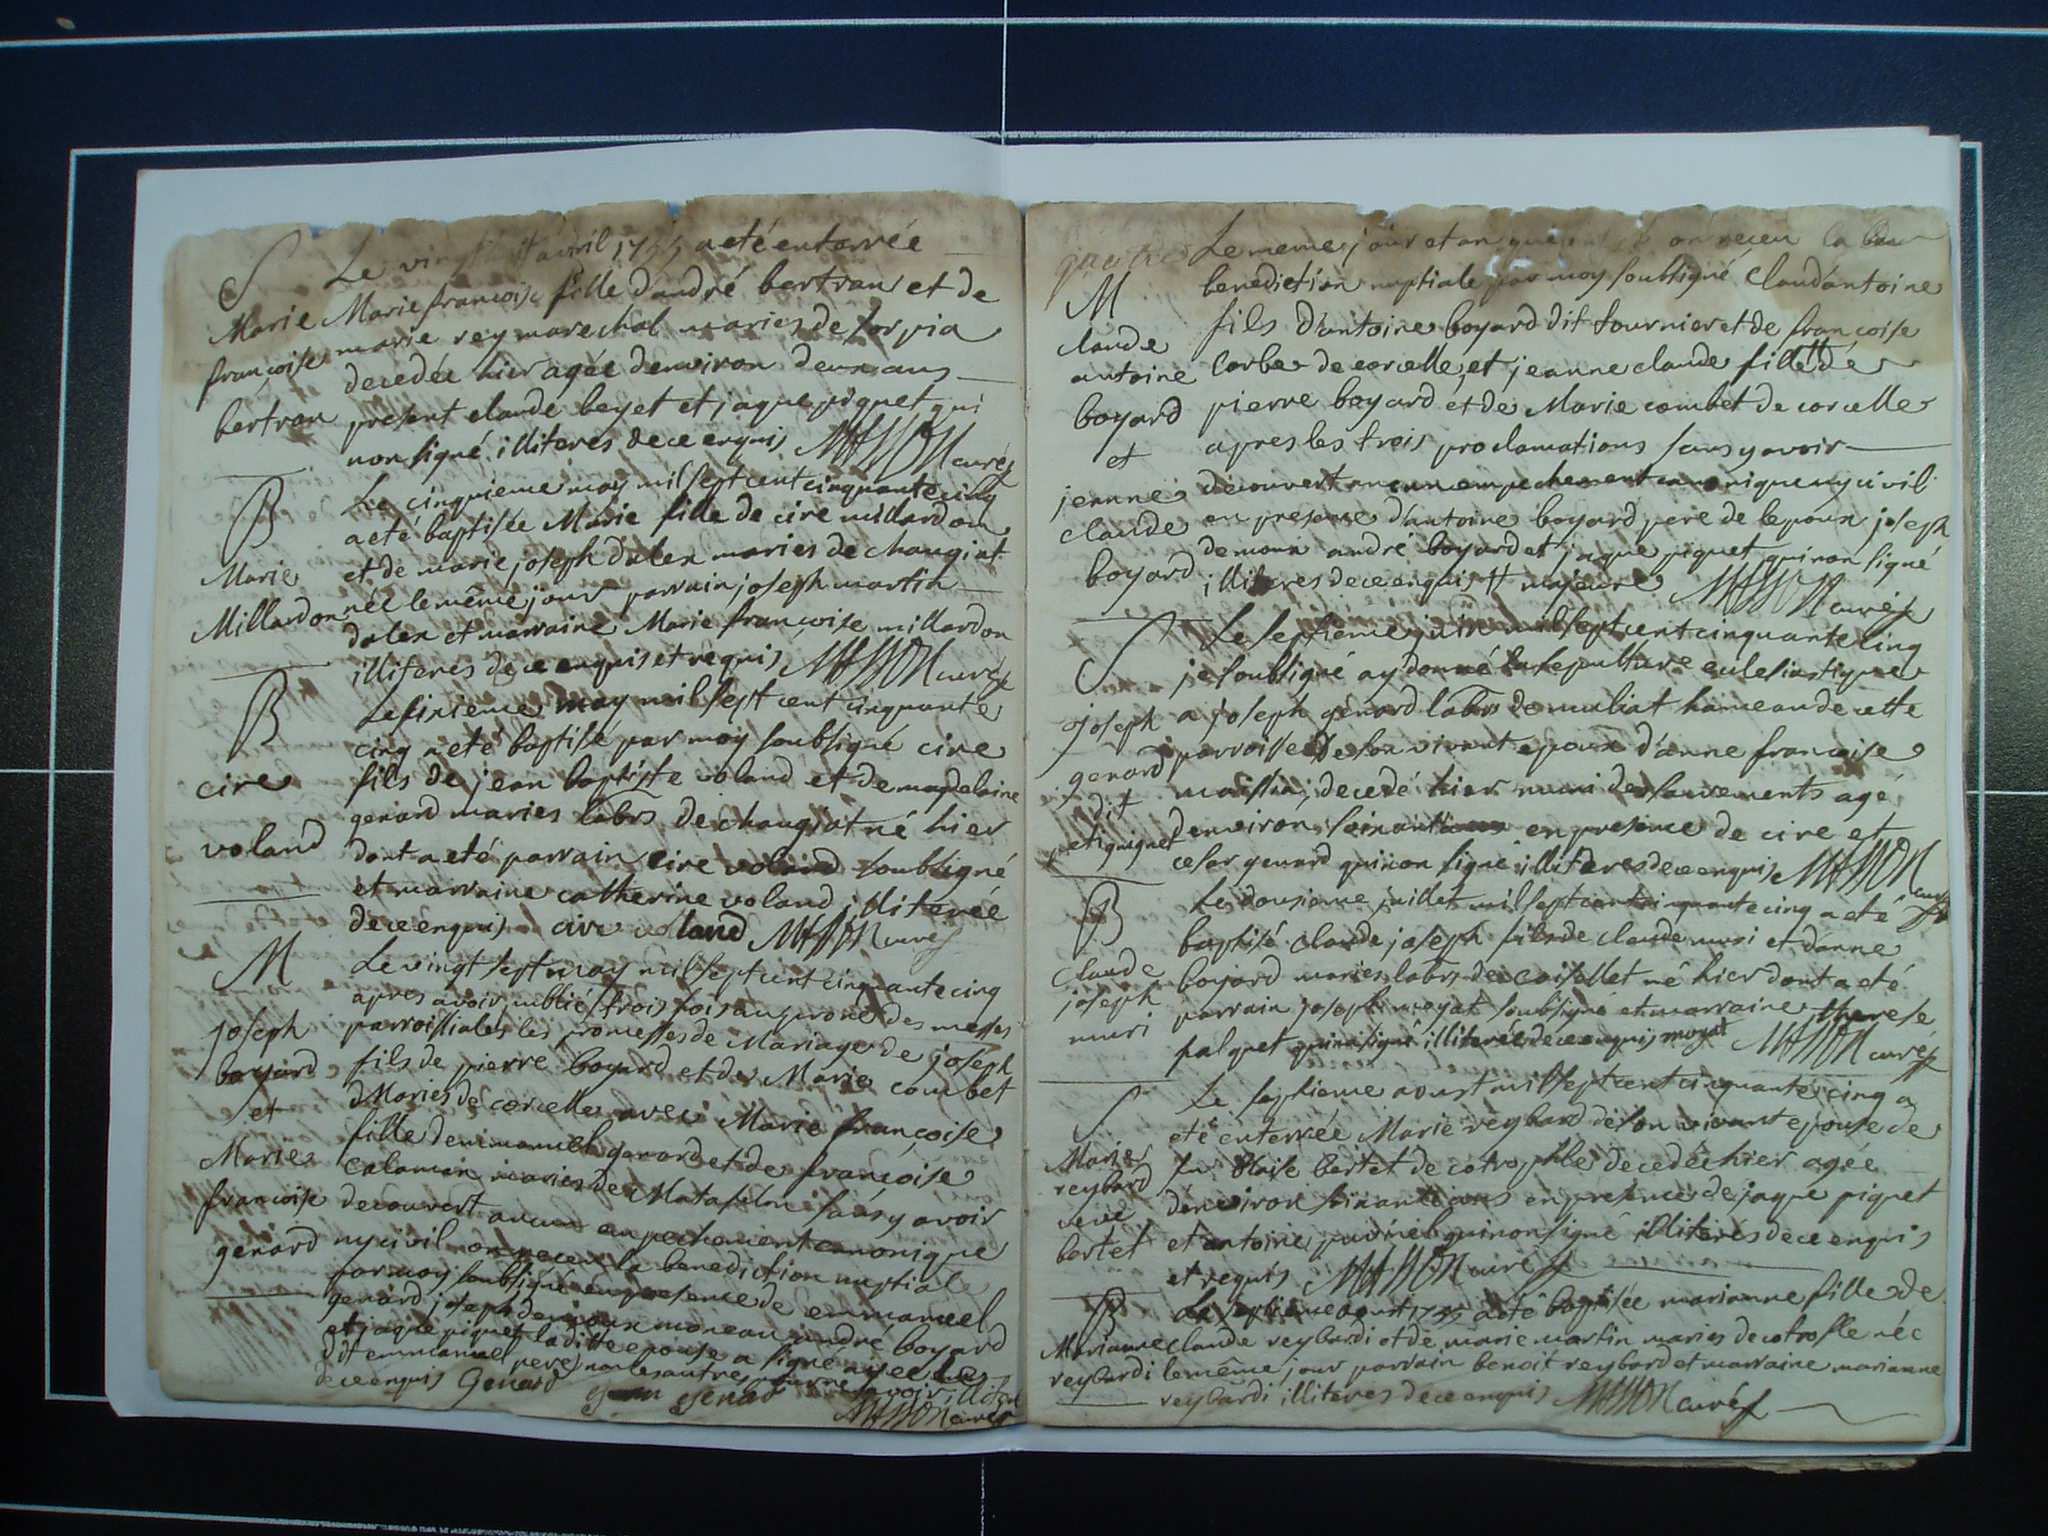 S
Marie
françoise
bertran
Le vingt avril 1755 a eté enterrée
Marie françoise fille d'andré bertran et de
marie rey marechal maries de sorpia
decedée hier agée denviron deux ans
present claude beyet et jaque piguet qui
non signé illiteres de ce enquis MASSON curé
B
Marie
Millardon
Le cinquieme may mil sept cent cinquante cinq
a eté baptisée Marie fille de cire millardon
et de marie joseph dalex maries de changiat
née le même jour parrain joseph martin
dalex et marraine Marie françoise millardon
illiteres de ce enquis et requis MASSON curé
B
cire
voland
Le sixieme may mil sept cent cinquante
cinq a eté baptisé par moy soubsigné cire
fils de jean baptiste voland et de magdelaine
genard maries labrs de changiat né hier
dont a eté parrain cire voland soubsigné
et marraine catherine voland illiterée
de ce enquis cire voland MASSON curé
M
joseph
boyard
et
Marie
françoise
genard
Le vingt sept may mil sept cent cinquante cinq
apres avoir publié trois fois au prone des messes
parroissiales les promesses de Mariage de joseph
fils de pierre boyard et de Marie combet
Maries de corcelle avec Marie françoise
fille demmanuel genard et de françoise
calamin maries de Matafelon sans y avoir
decouvert aucun empechement canonique
ny civil on reçeu la benediction nuptiale
par moy soubsigné en presence de emmanuel
genard joseph demoux moneau andré boyard
et jaque piguet laditte epouse a signé avec led
dit emmanuel pere non les autres pour ne savoir illiteres
de ce enquis Genard genard
MASSON curé
M
claude
antoine
boyard
et
jeanne
claude
boyard
Le meme jour et an que on reçeu la
benediction nuptiale par moy soubsigné Claud'antoine
fils d'antoine boyard dit tournier et de françoise
corbe de corcelle, et jeanne claude fille # de
pierre boyard et de Marie combet de corcelle
apres les trois proclamations sans y avoir
decouvert aucun empechement canonique ny civil
en presence d'antoine boyard pere de lepoux joseph
demoux andré boyard et jaque piguet qui non signé
illiteres de ce enquis # majeure MASSON curé
S
joseph
genard
dit
petiguignet
Le septieme juin mil sept cent cinquante cinq
je soubsigné ay donné la sepulture eclesiastique
a joseph genard labrs de muliat hameau de cette
parroisse De son vivant epoux d'anne françoise
maissia, decedé hier muni des sacrements agé
denviron soixante ans en presence de cire et
cesar genard qui non signé illiteres de ce enquis MASSON curé
B
Claude
joseph
muri
Le douzieme juillet mil sept cent cinquante cinq a eté
baptisé claude joseph fils de claude muri et d'anne
boyard maries labrs de coisellet né hier dont a eté
parrain joseph moyat soubsigné et marraine therese
palquet qui na signé illiterée de ce enquis moyat MASSON curé
S
Marie
reybard
veve
bertet
Le septieme aoust mil sept cent cinquante cinq a
eté enterrée Marie reybard de son vivant epouse de
fu blaise bertet de cotrophle decedée hier agée
denviron soixante ans en presence de jaque piguet
et antoine qui non signé illiterés de ce enquis
et requis MASSON curé
B
Marianne
reybardi
Le septieme aoust 1755 a eté baptisée marianne fille de
claude reybardi et de marie martin maries de cotrofle née
le même jour parrain benoit reybard et marraine marianne
reybardi illiteres de ce enquis MASSON curé